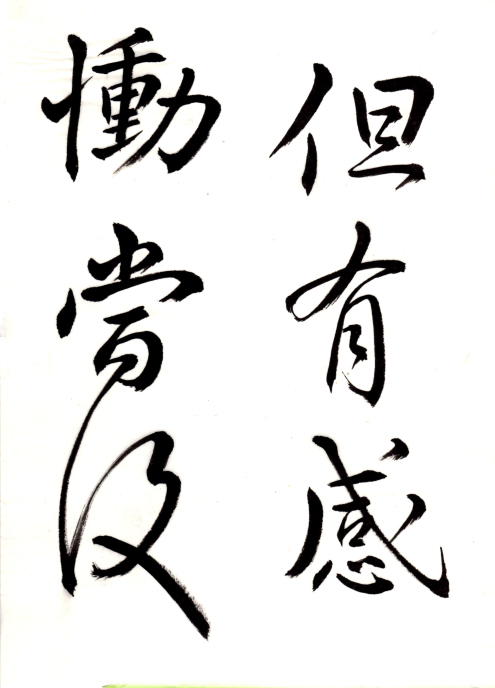 但有感
慟當復